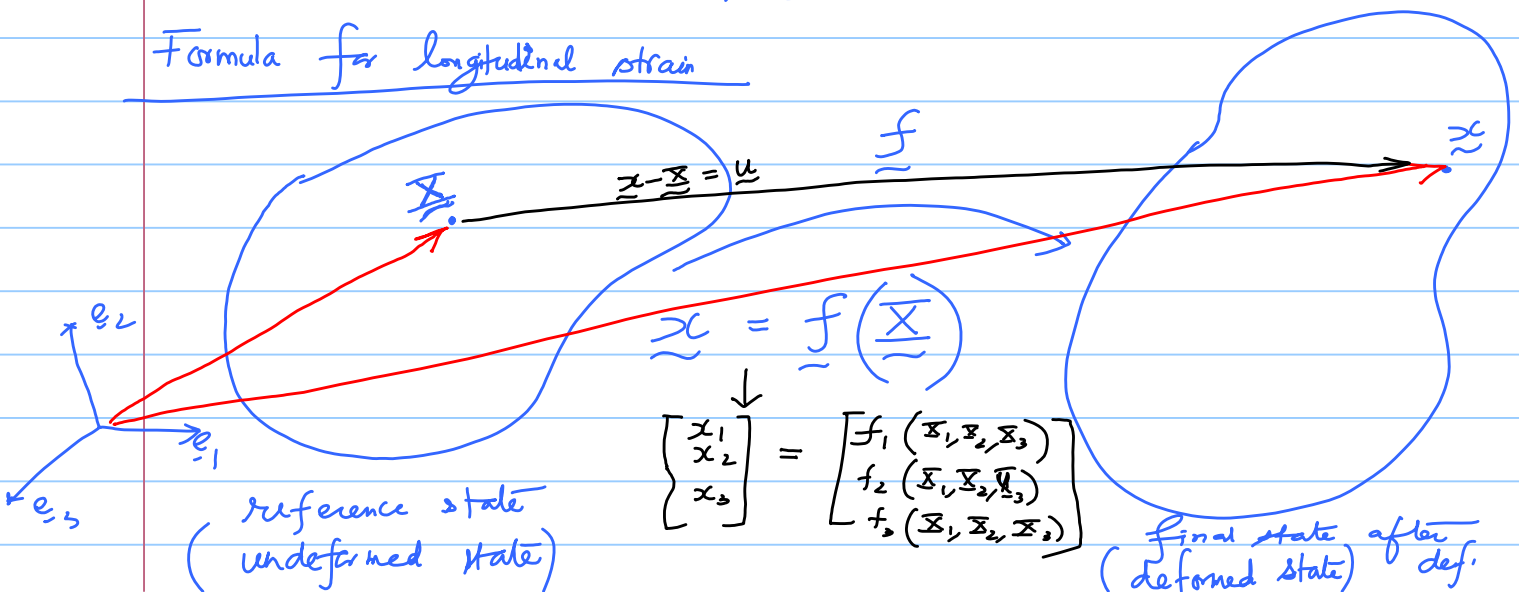 Formula for longitudinal strain
f
x
X
x - X = u
e2
x = f(X)
e1
e3
[x1 x2 x3] = [f1 (X1, X2, X3)
f2 (X1, X2, X3)
f3 (X1, X2, X3)]
reference state
(undeformed state)
final state after def.
(deformed state)